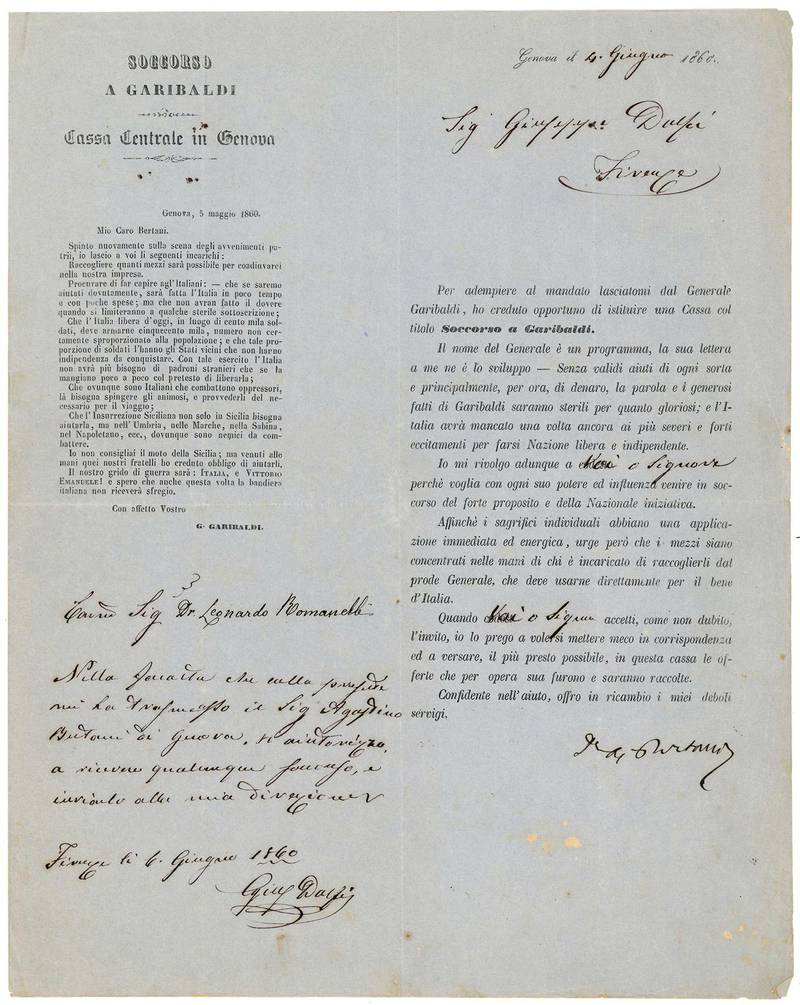 SOCCORSO
A GARIBALDI
Cassa Centrale in Genova
Genova, 5 maggio 1860.
Mio Caro Bertani.
Spinto nuovamente sulla scena degli avvenimenti pa-
trii, io lascio a voi li seguenti incarichi:
Raccogliere quanti mezzi sarà possibile per coadiuvarci
nella nostra impresa.
Procurare di far capire agl'Italiani: — che se saremo
aiutati dovutamente, sarà fatta l'Italia in poco tempo
e con poche spese; ma che non avran fatto il dovere
quando si limiteranno a qualche sterile sottoscrizione;
Che l'Italia libera d'oggi, in luogo di cento mila sol-
dati, deve armarne cinquecento mila, numero non cer-
tamente sproporzionato alla popolazione; e che tale pro-
porzione di soldati l'hanno gli Stati vicini che non hanno
indipendenza da conquistare. Con tale esercito l'Italia
non avrà più bisogno di padroni stranieri che se la
mangiano poco a poco col pretesto di liberarla;
Che ovunque sono Italiani che combattono oppressori,
là bisogna spingere gli animosi, e provvederli del ne-
cessario per il viaggio;
Che l'Insurrezione Siciliana non solo in Sicilia bisogna
aiutarla, ma nell'Umbria, nelle Marche, nella Sabina,
nel Napoletano, ecc., dovunque sono nemici da com-
battere.
Io non consigliai il moto della Sicilia; ma venuti alle
mani quei nostri fratelli ho creduto obbligo di aiutarli.
Il nostro grido di guerra sarà: ITALIA, E VITTORIO
EMANUELE! e spero che anche questa volta la bandiera
italiana non riceverà sfregio.
Con affetto Vostro
G. GARIBALDI.
Sig Dr Leonardo Romanelli
Nella che colla
mi ha trasmesso il Sig Agostino
Bertani di Genova, autorizzo
a ricevere qualunque soccorso, e
inviarlo alla mia direzione
Firenze li 6. Giugno 1860
Gius Dolfi
Genova il 4. Giugno 1860.
Sig Giuseppe Dolfi
Firenze
Per adempiere al mandato lasciatomi dal Generale
Garibaldi, ho creduto opportuno di istituire una Cassa col
titolo Soccorso a Garibaldi.
Il nome del Generale è un programma, la sua lettera
a me ne è lo sviluppo — Senza validi aiuti di ogni sorta
e principalmente, per ora, di denaro, la parola e i generosi
fatti di Garibaldi saranno sterili per quanto gloriosi; e l'I-
talia avrà mancato una volta ancora ai più severi e forti
eccitamenti per farsi Nazione libera e indipendente.
Io mi rivolgo adunque a o Signore
perchè voglia con ogni suo potere ed influenza venire in soc-
corso del forte proposito e della Nazionale iniziativa.
Affinchè i sagrifici individuali abbiano una applica-
zione immediata ed energica, urge però che i mezzi siano
concentrati nelle mani di chi è incaricato di raccoglierli dal
prode Generale, che deve usarne direttamente per il bene
d'Italia.
Quando o Signore accetti, come non dubito,
l'invito, io lo prego a volersi mettere meco in corrispondenza
ed a versare, il più presto possibile, in questa cassa le of-
ferte che per opera sua furono e saranno raccolte.
Confidente nell'aiuto, offro in ricambio i miei deboli
servigi.
Bertani